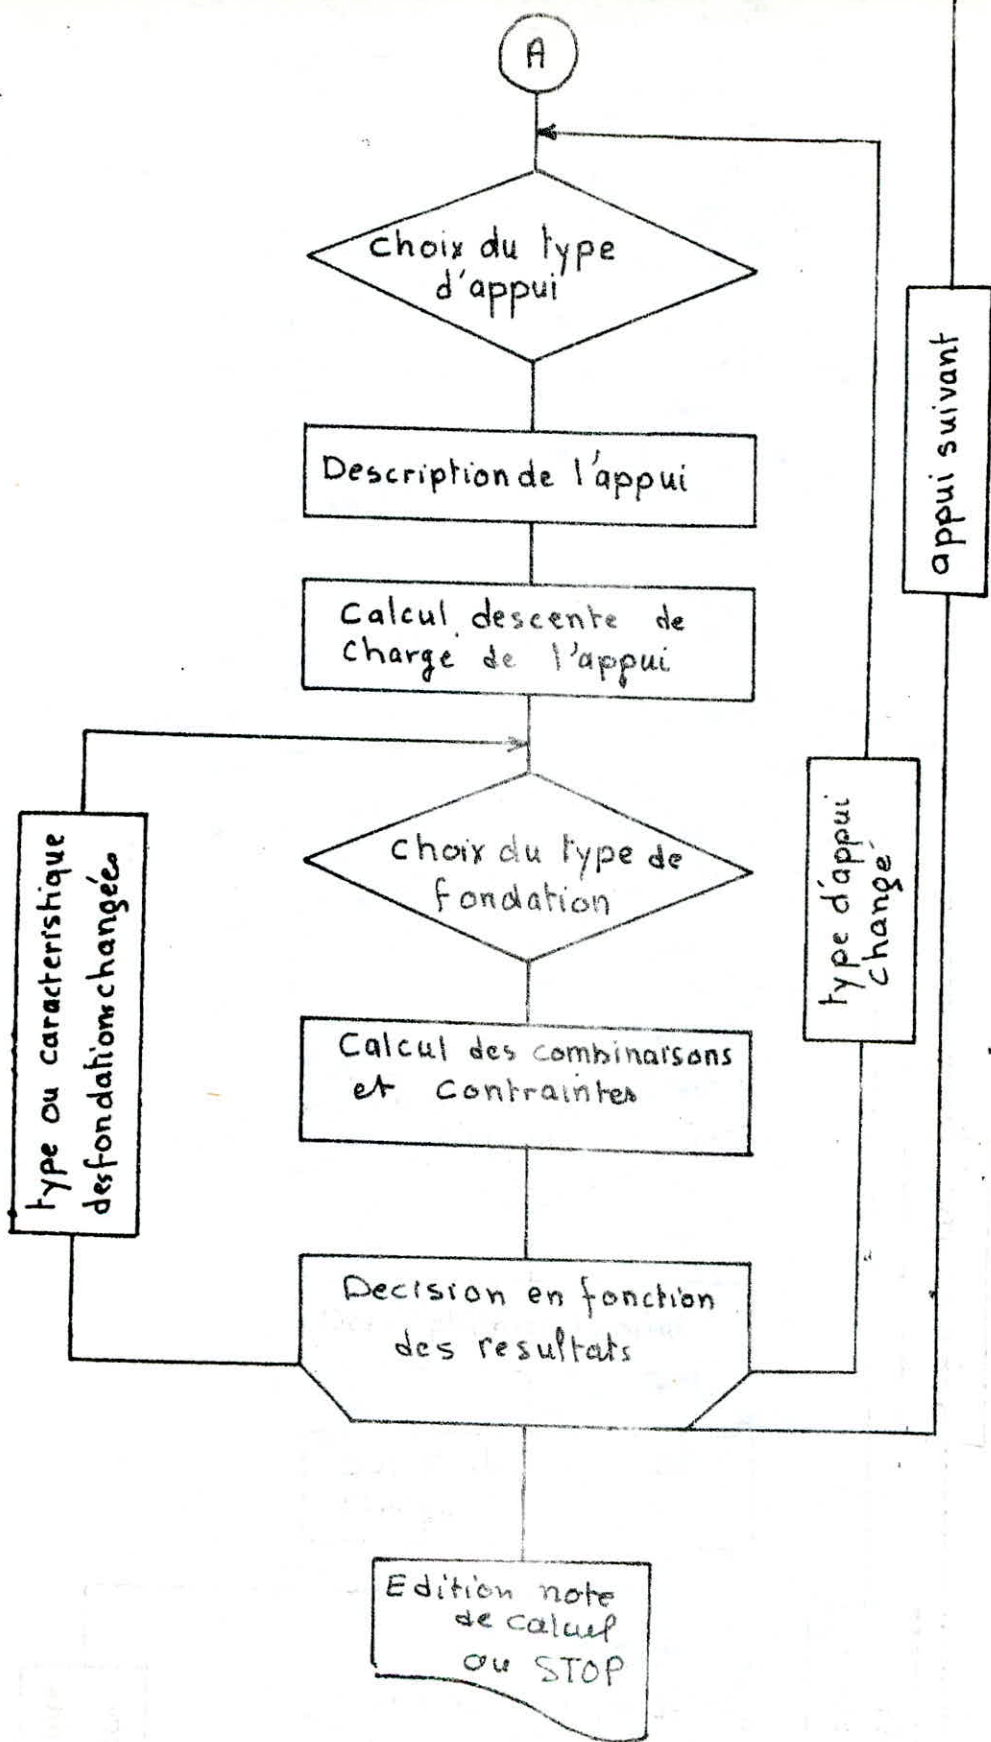 A
Choix du type
d'appui
Description de l'appui
Calcul descente de
Charge de l'appui
Choix du type de
fondation
Calcul des combinaisons
et Contraintes
Decision en fonction
des resultats
Edition note
de calcul
ou STOP
type ou caracteristique
des fondations changées
type d'appui
changé
appui suivant